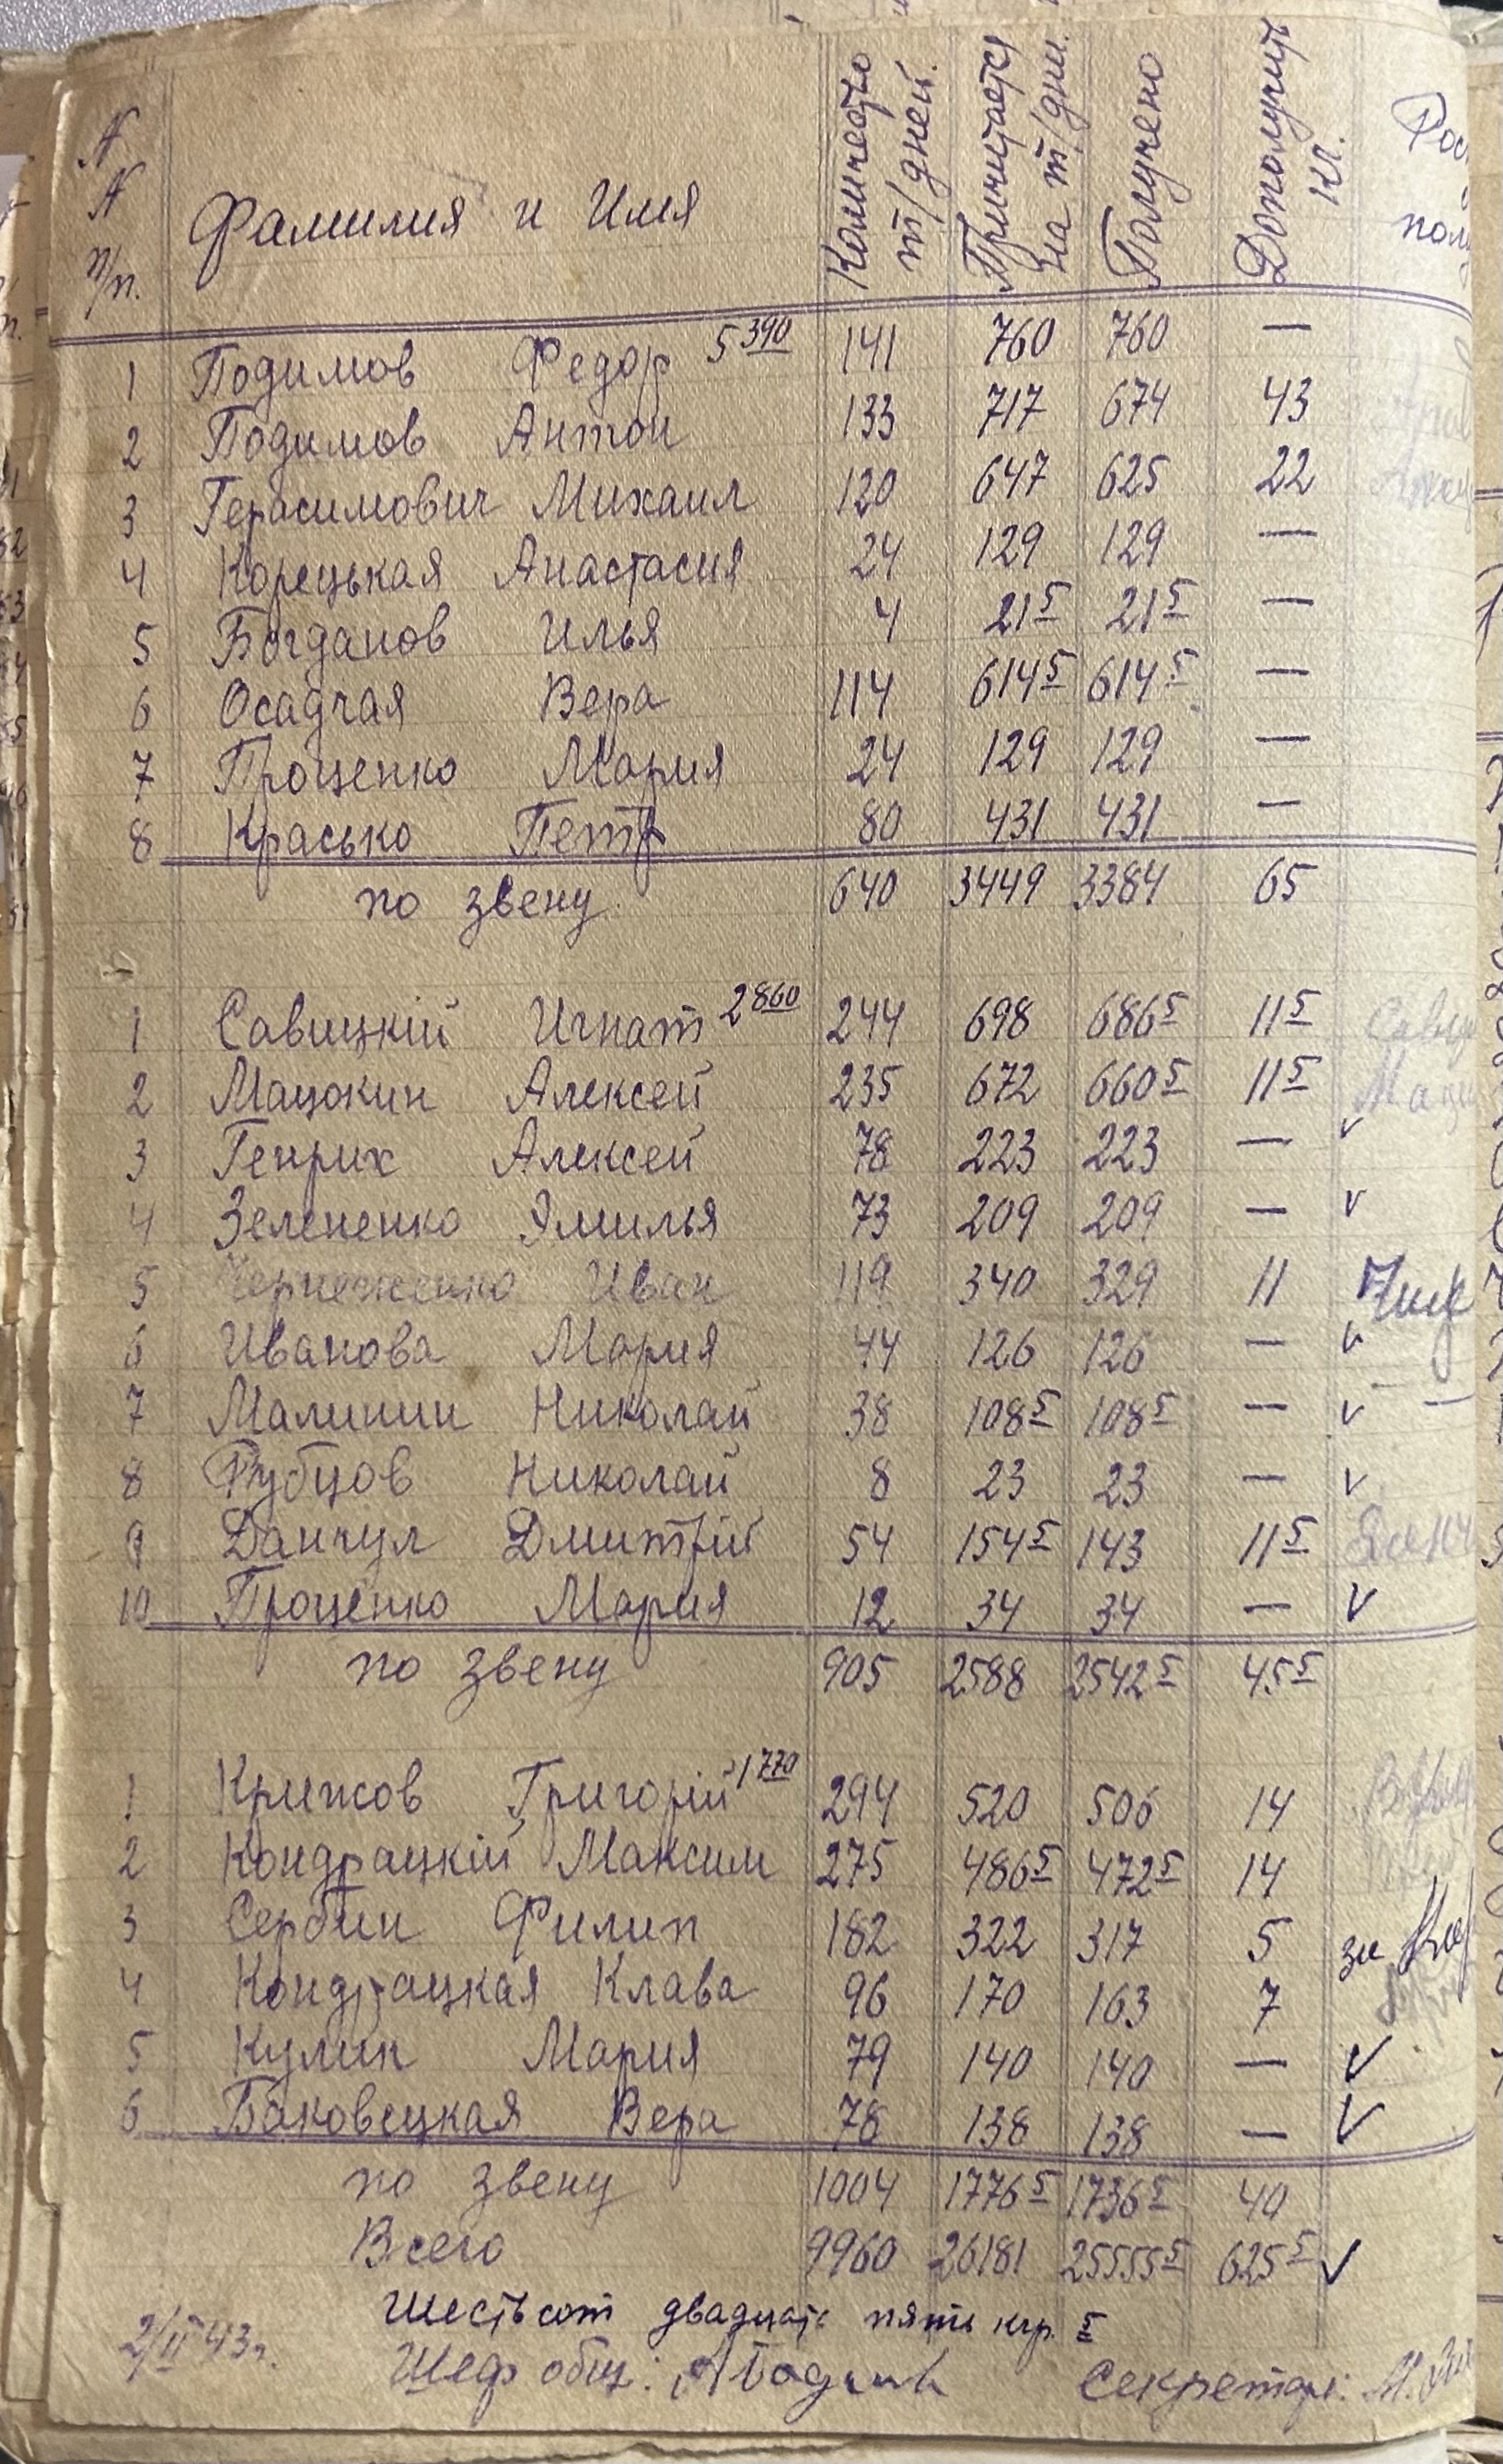 № № п/п. Фамилия и Имя Количество т/дней. Причитается на т/дни. Получено Дополучить кг.
1 Подимов Федор 5 390 141 760 760 —
2 Подимов Антон 133 717 674 43
3 Герасимович Михаил 120 647 625 22
4 Корецькая Анастасия 24 129 129 —
5 Богданов Илья 4 21 5 21 5 —
6 Осадчая Вера 114 614 5 614 5 —
7 Проценко Мария 24 129 129 —
8 Красько Петр 80 431 431 —
по звену 640 3449 3384 65
1 Савицкій Игнат 2 860 244 698 686 5 11 5
2 Мацокин Алексей 235 672 660 5 11 5
3 Генрих Алексей 78 223 223 — v
4 Зелененко Эмилья 73 209 209 — v
5 Иван 119 340 329 11
6 Иванова Мария 44 126 126 — v
7 Малинин Николай 38 108 5 108 5 — v
8 Рубцов Николай 8 23 23 — v
9 Данчул Дмитрій 54 154 5 143 11 5
10 Проценко Мария 12 34 34 — v
по звену 905 2588 2542 5 45 5
1 Крижов Григорій 1 770 294 520 506 14
2 Кондрацкій Максим 275 486 5 472 5 14
3 Сербин Филип 182 322 317 5 за
4 Кондрацкая Клава 96 170 163 7
5 Кулик Мария 79 140 140 — v
6 Баковецкая Вера 78 138 138 — v
по звену 1004 1776 5 1736 5 40
Всего 9960 26181 25555 5 625 5 v
Шестьсот двадцать пять кгр. 5
2/II 43г. Шеф общ.: Секретарь: